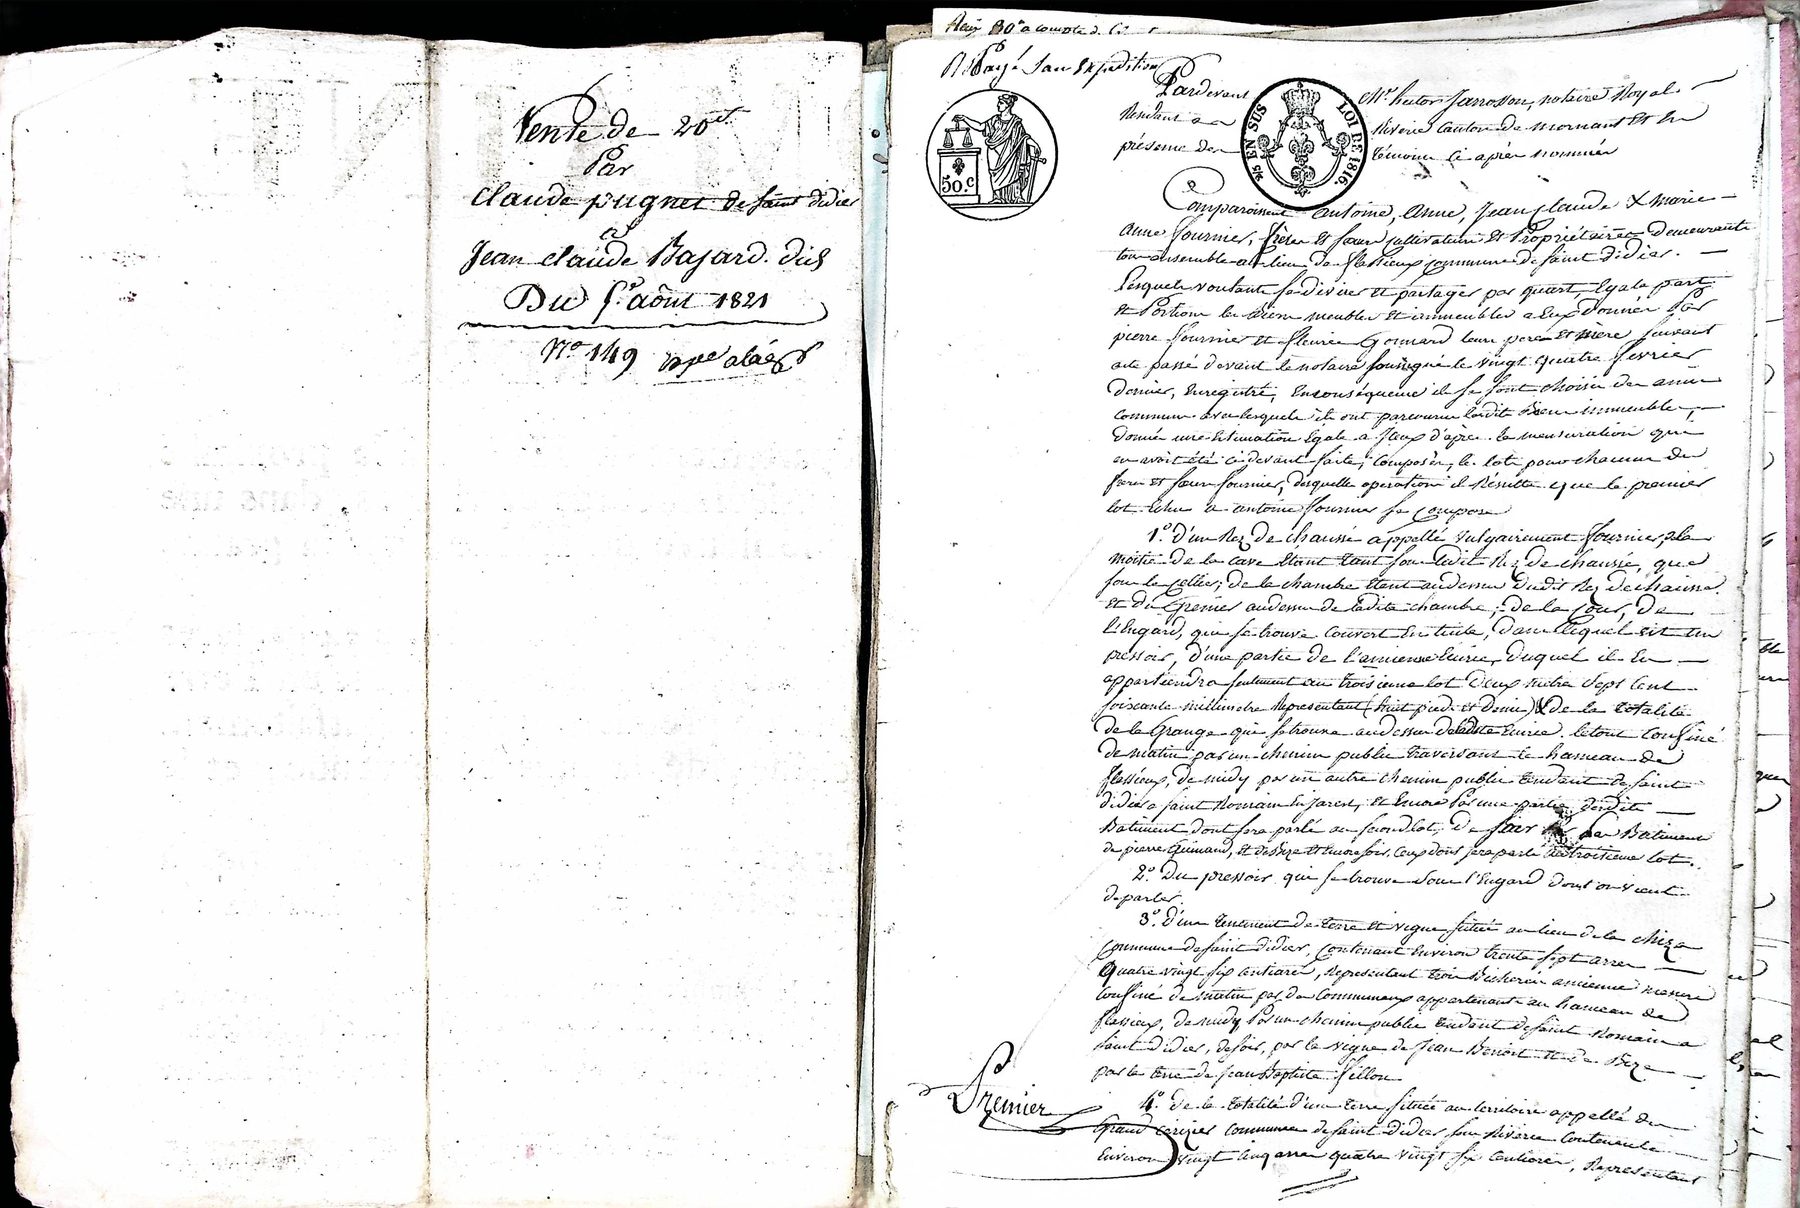 Vente de 20ct
Par
Claude pugnet de saint didier
à
Jean Claude Bajard dus
Du 5 août 1821
No 149
à compte
Payé sans Expédition
50.c
EN SUS
LOI DE 1816.
Pardevant Me hector Janosson, notaire Royal
Résidant à Riverie canton de mornant Et En
présence des témoins ci après nommés
Comparoissent antoine, anne, Jean Claude & marie
anne fournier, frères Et sœurs cultivateurs Et Propriétaires demeurants
tous ensemble au lieu de flassieux commune de saint didier.
Lesquels voulants se diviser Et partager par quart, Egale part
et Portion les biens meubles Et immeubles a Eux Donnés Par
pierre fournier et fleurie Gonnard leurs pere Et mere suivant
acte passé devant le notaire soussigné le vingt quatre fevrier
dernier, Enregistré, En conséquence ils se sont choisis des amis
communs avec lesquels ils ont parcourus lesdits Biens immeubles,
donné une Estimation Egale a Iceux d'après la mensuration qui
en avoit été ci devant faite; composés, les lots pour chacun des
freres Et sœurs fournier, desquelles operations il Résulte que le premier
lot Echu a antoine fournier se compose
1o. D'un Rez de chaussé appellé vulgairement fournier, de la
moitié de la cave Etant tant sous ledit Rez de chaussée, que
sous le Cellier; de la chambre Etant au dessus dudit Rez de chaussé
Et du Grenier au dessus de ladite chambre; de la cour, de
l'Engard, qui se trouve couvert En tuile, dans lequel est un
pressoir, d'une partie de l'ancienne Ecurie, duquel il En
appartiendra seulement au troisieme lot deux metres sept cent
soixante millimetre Representant (huit pieds et demi) & de la totalité
de la Grange qui se trouve au dessus de ladite Ecurie. le tout Confiné
de matin par un chemin public traversant le hameau de
flassieux, de midy par un autre chemin public tendant de saint
didier a saint Romain En jarest, Et Encore Par une partie desdits
Batiments dont sera parlé au second lot, de soir par les Batiments
de pierre Guinand, et de bize Et Encore soir, ceux dont sera parlé au troisieme lot.
2o. Du pressoir qui se trouve sous l'Engard dont on vient
de parler.
3o. D'un tenement de terre et vigne située au lieu de la chize
Commune de saint didier, contenant Environ trente sept arres
quatre vingt six centiares, Representant trois Bicherées ancienne mesure
Confiné de matin par des communaux appartenants au hameau de
flassieux, de midy Par un chemin public tendant de saint Romain a
saint didier, de soir, par la vigne de Jean Benoit et de Bize
par la terre de Jean Baptiste fillon
Premier
4o. de la totalité d'une terre située au territoire appellé du
Grand cerizier commune de saint didier sous Riverie contenant
Environ vingt cinq arres quatre vingt six centiares, Representant